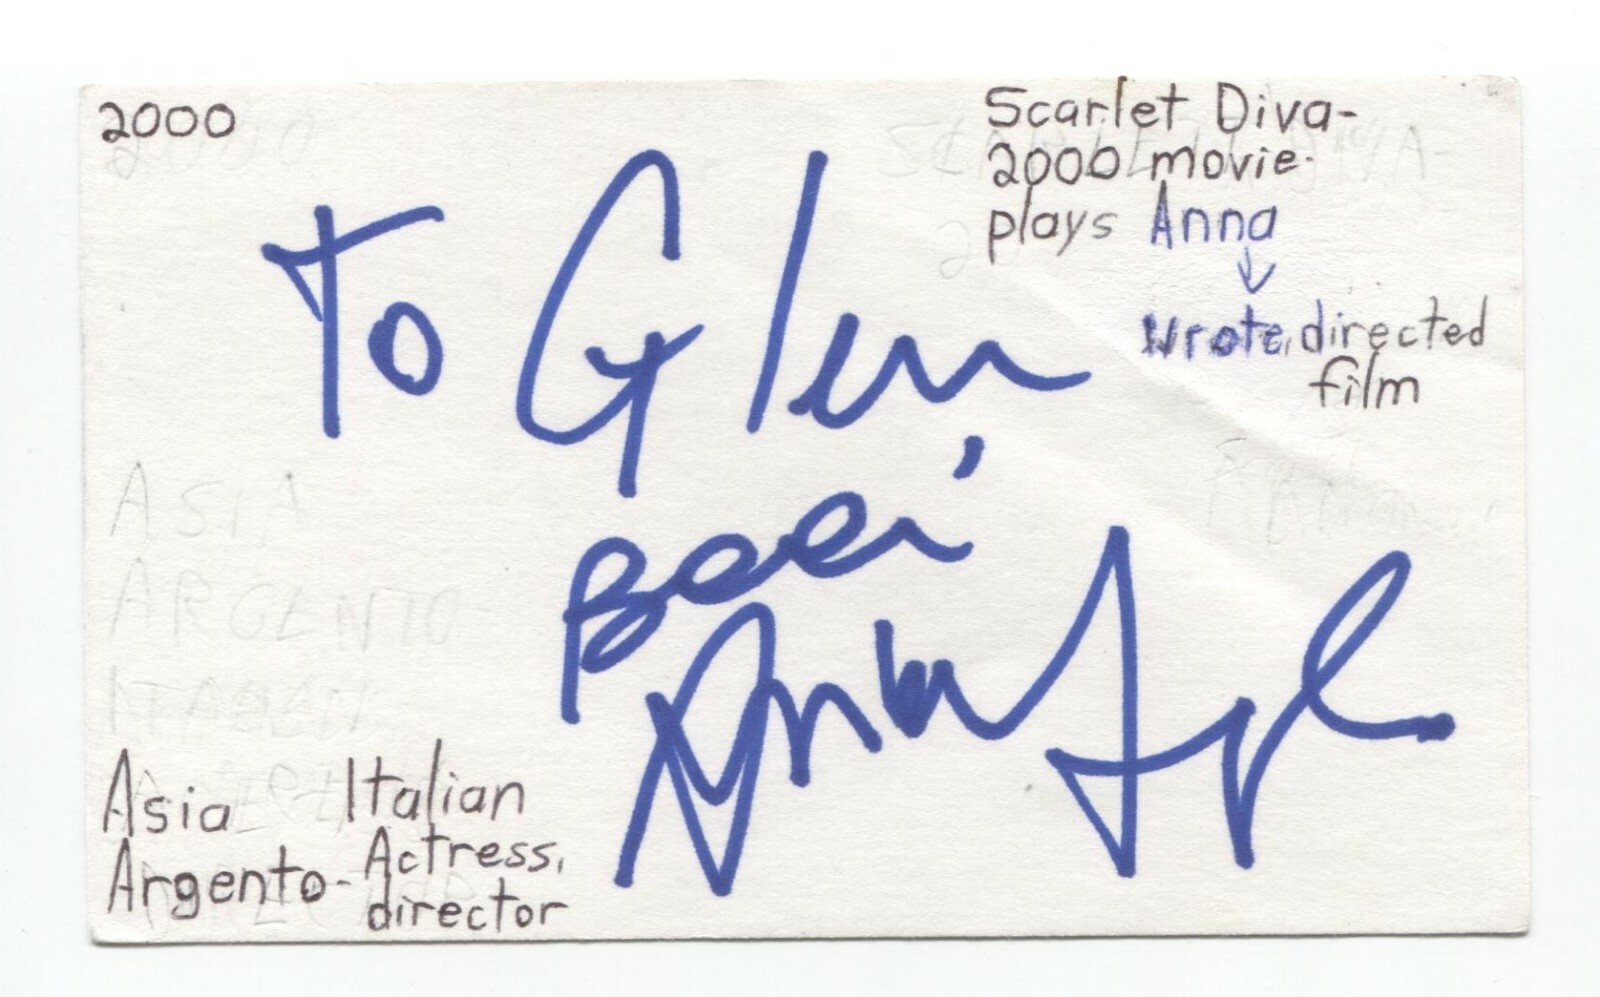 2000
Scarlet Diva-
2000 movie-
plays Anna
wrote, directed
film
To Glen
Baci
ASIA
ARGENTO
Asia Italian
Argento- Actress,
director